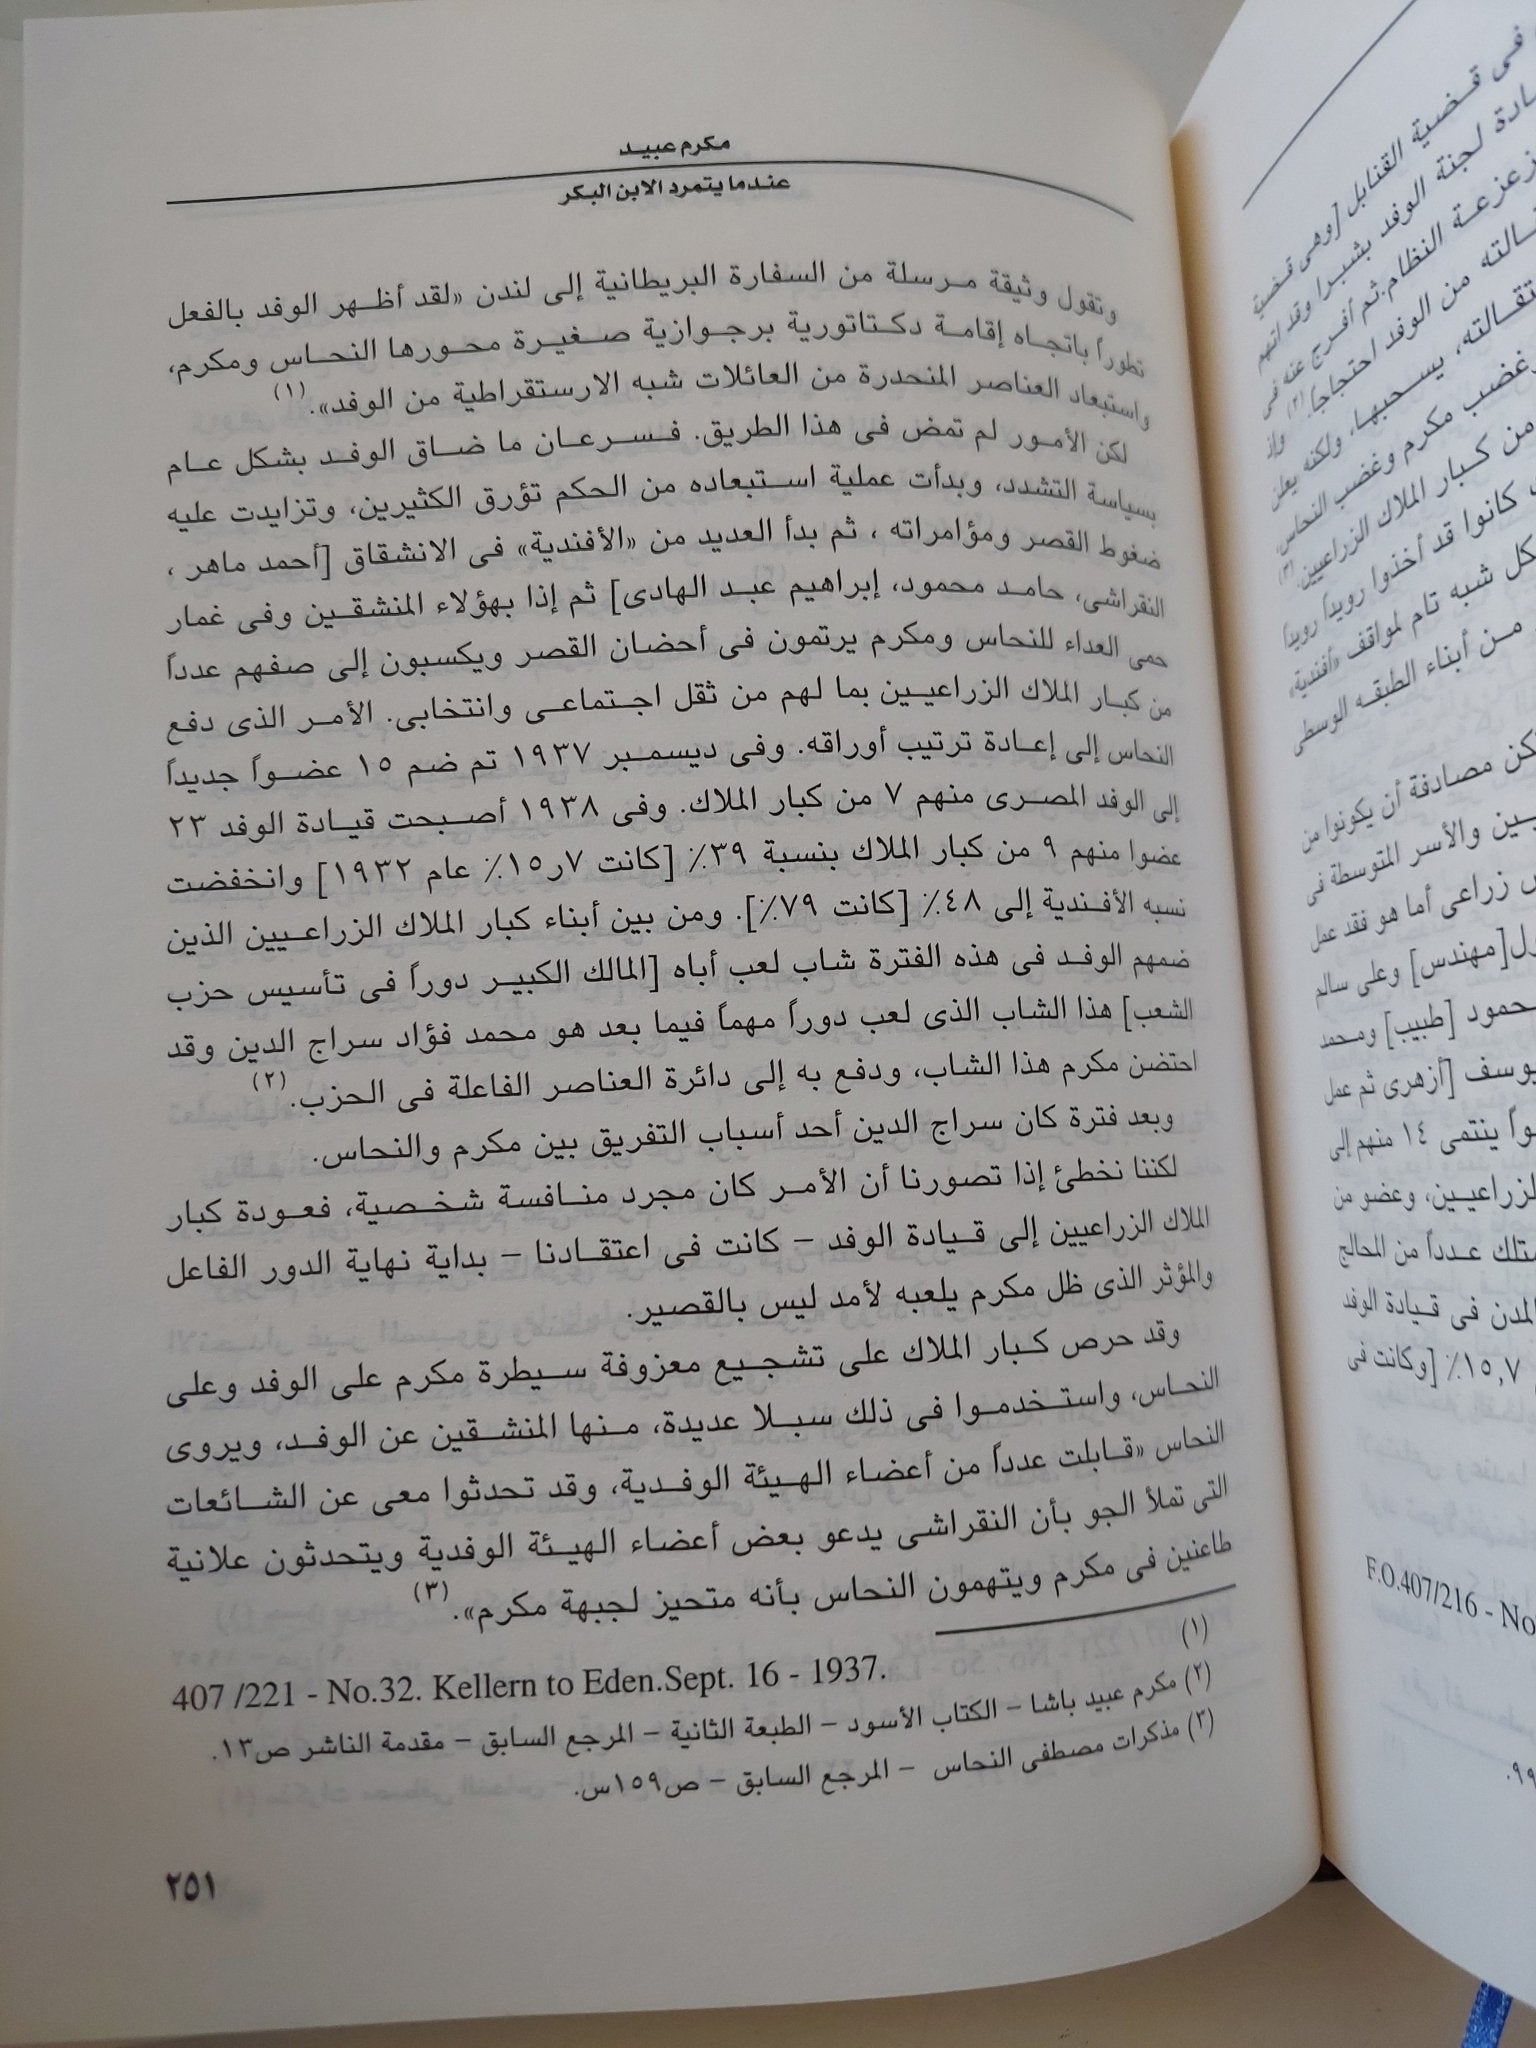 مكرم عبيد
عندما يتمرد الابن البكر
وتقول وثيقة مرسلة من السفارة البريطانية إلى لندن «لقد أظهر الوفد بالفعل
تطوراً باتجاه إقامة دكتاتورية برجوازية صغيرة محورها النحاس ومكرم،
واستبعاد العناصر المنحدرة من العائلات شبه الارستقراطية من الوفد».(١)
لكن الأمور لم تمض فى هذا الطريق. فسرعان ما ضاق الوفد بشكل عام
بسياسة التشدد، وبدأت عملية استبعاده من الحكم تؤرق الكثيرين، وتزايدت عليه
ضغوط القصر ومؤامراته ، ثم بدأ العديد من «الأفندية» فى الانشقاق [أحمد ماهر ،
النقراشى، حامد محمود، إبراهيم عبد الهادى] ثم إذا بهؤلاء المنشقين وفى غمار
حمى العداء للنحاس ومكرم يرتمون فى أحضان القصر ويكسبون إلى صفهم عدداً
من كبار الملاك الزراعيين بما لهم من ثقل اجتماعى وانتخابى. الأمر الذى دفع
النحاس إلى إعادة ترتيب أوراقه. وفى ديسمبر ١٩٣٧ تم ضم ١٥ عضواً جديداً
إلى الوفد المصرى منهم ٧ من كبار الملاك. وفى ١٩٣٨ أصبحت قيادة الوفد ٢٣
عضوا منهم ٩ من كبار الملاك بنسبة ٣٩٪ [كانت ٧ر١٥٪ عام ١٩٣٢] وانخفضت
نسبه الأفندية إلى ٤٨٪ [كانت ٧٩٪]. ومن بين أبناء كبار الملاك الزراعيين الذين
ضمهم الوفد فى هذه الفترة شاب لعب أباه [المالك الكبير دوراً فى تأسيس حزب
الشعب] هذا الشاب الذى لعب دوراً مهماً فيما بعد هو محمد فؤاد سراج الدين وقد
احتضن مكرم هذا الشاب، ودفع به إلى دائرة العناصر الفاعلة فى الحزب.(٢)
وبعد فترة كان سراج الدين أحد أسباب التفريق بين مكرم والنحاس.
لكننا نخطئ إذا تصورنا أن الأمر كان مجرد منافسة شخصية، فعودة كبار
الملاك الزراعيين إلى قيادة الوفد – كانت فى اعتقادنا – بداية نهاية الدور الفاعل
والمؤثر الذى ظل مكرم يلعبه لأمد ليس بالقصير.
وقد حرص كبار الملاك على تشجيع معزوفة سيطرة مكرم على الوفد وعلى
النحاس، واستخدموا فى ذلك سبلا عديدة، منها المنشقين عن الوفد، ويروى
النحاس «قابلت عدداً من أعضاء الهيئة الوفدية، وقد تحدثوا معى عن الشائعات
التى تملأ الجو بأن النقراشى يدعو بعض أعضاء الهيئة الوفدية ويتحدثون علانية
طاعنين فى مكرم ويتهمون النحاس بأنه متحيز لجبهة مكرم».(٣)
(١)
407 /221 - No.32. Kellern to Eden.Sept. 16 - 1937.
(٢) مكرم عبيد باشا – الكتاب الأسود – الطبعة الثانية – المرجع السابق – مقدمة الناشر ص١٣.
(٣) مذكرات مصطفى النحاس – المرجع السابق – ص١٥٩س.
٢٥١
فى قضية القنابل [وهى قضية
لجنة الوفد بشبرا وقد اتهم
النظام. ثم أفرج عنه فى
من الوفد احتجاجاً.(٢) وإذ
يسحبها، ولكنه يعلن
غضب مكرم وغضب النحاس،
من كبار الملاك الزراعيين.(٣)
كانوا قد أخذوا رويداً رويداً
شبه تام لمواقف «أفندية»
من أبناء الطبقه الوسطى
مصادفة أن يكونوا من
والأسر المتوسطة فى
زراعى أما هو فقد عمل
[مهندس] وعلى سالم
[طبيب] ومحمد
[أزهرى ثم عمل
ينتمى ١٤ منهم إلى
وعضو من
عدداً من المحالج
المدن فى قيادة الوفد
١٥,٧٪ [وكانت فى
F.O.407/216 - No